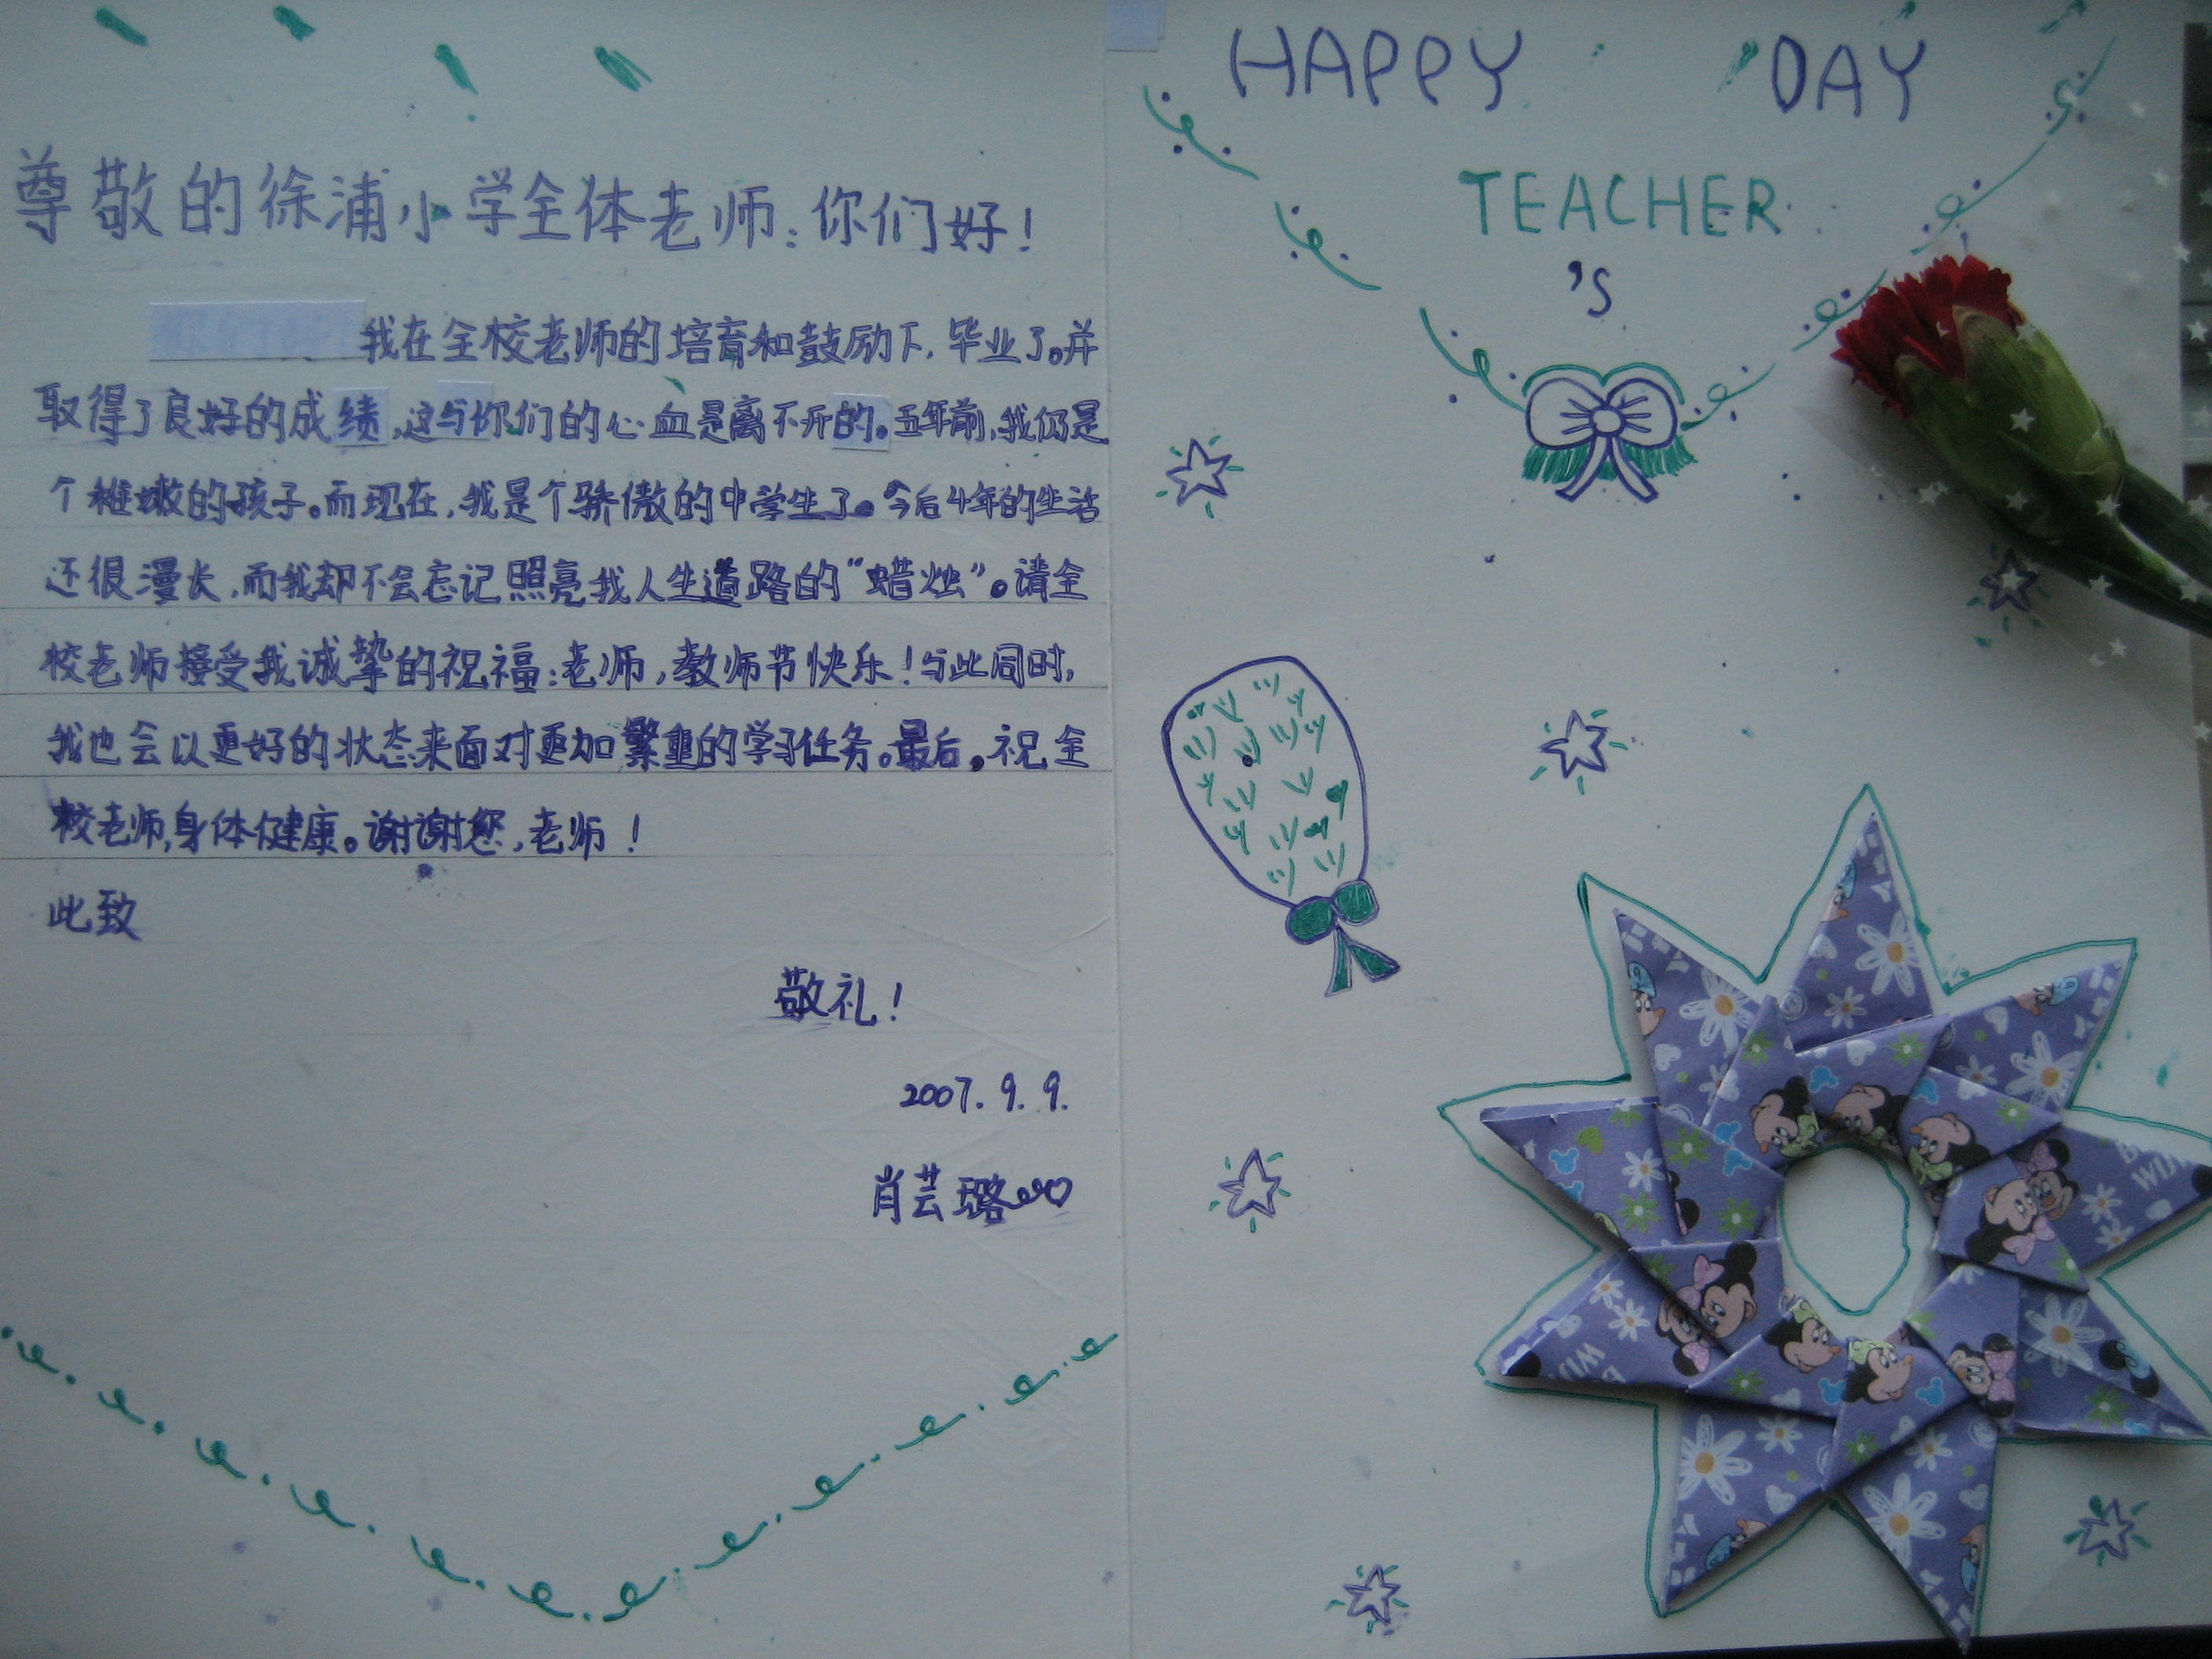 尊敬的徐浦小学全体老师:你们好!
我在全校老师的培育和鼓励下,毕业了。并
取得了良好的成绩,这与你们的心血是离不开的。五年前,我仍是
个稚嫩的孩子。而现在,我是个骄傲的中学生了。今后4年的生活
还很漫长,而我却不会忘记照亮我人生道路的“蜡烛”。请全
校老师接受我诚挚的祝福:老师,教师节快乐!与此同时,
我也会以更好的状态来面对更加繁重的学习任务。最后,祝全
校老师,身体健康。谢谢您,老师!
此致
敬礼!
2007.9.9.
肖芸璐
HAPPY DAY
TEACHER
's